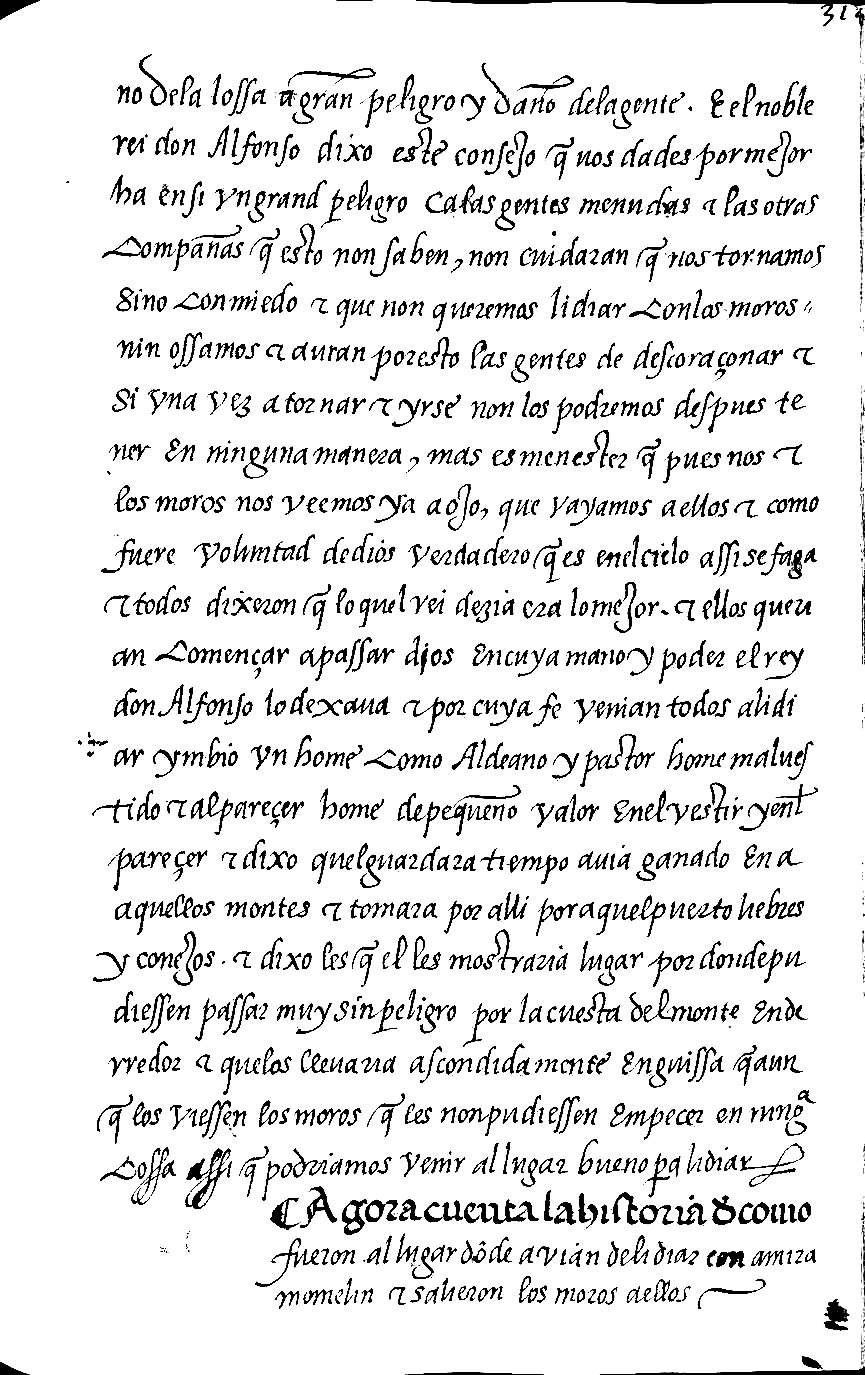 313
no dela lossa a grãn peligro y daño delagente. E el noble
rei don Alfonso dixo este consejo q̃ uos dades por mejor
ha en si vn grand peligro Ca las gentes menudas ⁊ las otras
Compañas q̃ esto non saben, non cuidaran q̃ nos tornamos
Sino Con miedo ⁊ que non queremos lidiar Con los moros
nin ossamos ⁊ auran por esto las gentes de descoraçonar ⁊
Si vna vez a tornar ⁊ yrse non los podremos despues te
ner En ninguna manera, mas es menester q̃ pues nos ⁊
los moros nos veemos ya a ojo, que vayamos a ellos ⁊ como
fuere voluntad de dios verdadero q̃ es enel cielo assi se faga
⁊ todos dixeron q̃ lo quel rei dezia era lo mejor. ⁊ ellos queri
an Començar a passar dios En cuya mano y poder el rey
don Alfonso lo dexaua ⁊ por cuya fe venian todos a lidi
ar ymbio vn home Como Aldeano y pastor home mal ues
tido ⁊ al pareçer home de pequeño valor Enel vestir y enl
pareçer ⁊ dixo quel guardara tiempo auia ganado En a
aquellos montes ⁊ tomara por alli por aquel puerto liebres
y conejos. ⁊ dixo les q̃ el les mostraria lugar por donde pu
diessen passar muy sin peligro por la cuesta del monte En de
rredor ⁊ que los lleuaria ascondidamente En guissa q̃ aun
q̃ los viessen los moros q̃ les non pudiessen Empecer en ningᵃ
Cossa assi q̃ podriamos venir al lugar bueno pa lidiar
Agora cuenta la historia de como
fueron al lugar dõde avian de lidiar con amira
momelin ⁊ salieron los moros a ellos